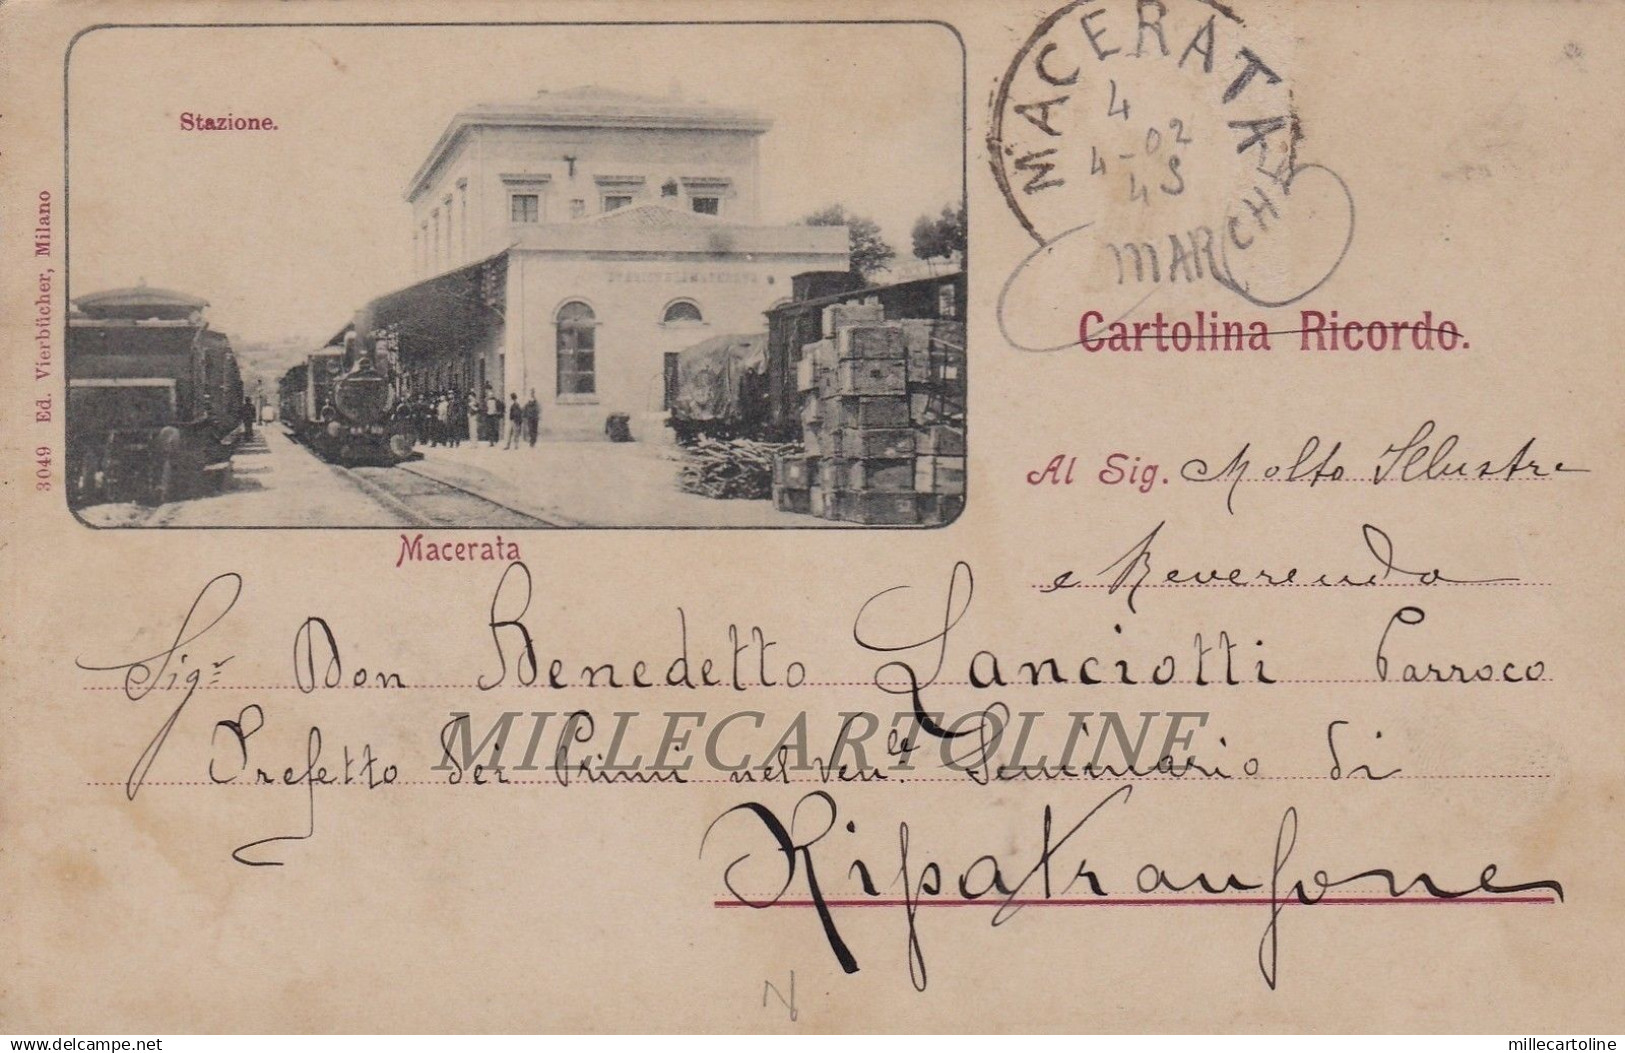 Stazione.
MACERATA
4
4-02
4 S
MARCHE
3049 Ed. Vierbücher, Milano
Cartolina Ricordo.
Al Sig. Molto Illustre
e Reverendo
Macerata
Sigr Don Benedetto Lanciotti Parroco
Prefetto dei Primi nel Ven.le Seminario di
MILLECARTOLINE
Ripatransone
N
delcampe.net
millecartoline